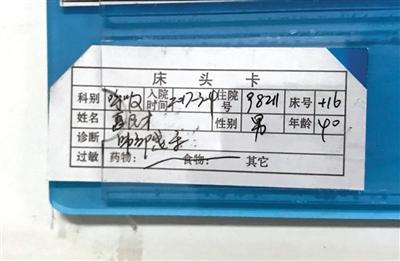 床头卡
科别 呼吸 入院时间 2017-3-9 住院号 98211 床号 +16
姓名 性别 男 年龄 40
诊断 肺部感染
过敏 药物： 食物： 其它